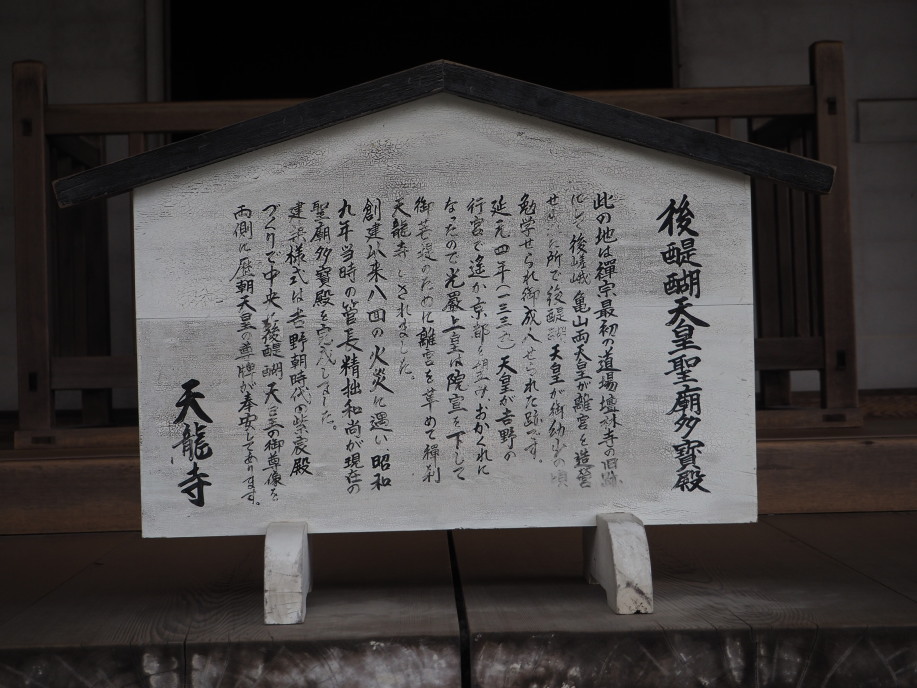 後醍醐天皇聖廟多寶殿
此の地は禪宗最初の道場壇林寺の旧
にして後嵯峨亀山両天皇が離宮を造営
せ た所で後醍醐天皇が御幼少の頃
勉学せられ御成人せられた跡です。
延元四年(一三三九)天皇が吉野の
行宮で遙か京都を望みおかくれに
なったので光嚴上皇は院宣を下して
御菩提のために離宮を革めて禪刹
天龍寺とされました。
創建以来八回の火災に遇い昭和
九年当時の管長精拙和尚が現在の
聖廟多寶殿を完成しました。
建築様式は吉野朝時代の紫宸殿
づくりで中央に後醍醐天皇の御尊像を
両側に歴朝天皇の尊牌が奉安してあります。
天龍寺